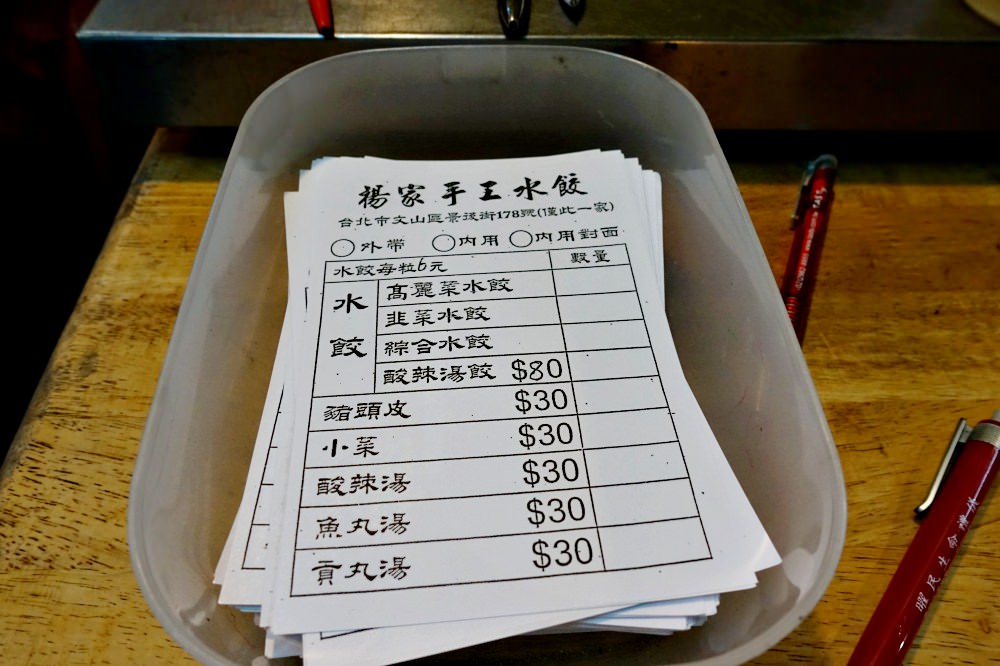 楊家手工水餃
台北市文山區景後街178號(僅此一家)
○外帶 ○內用 ○內用對面
水餃每粒6元 數量
水餃
高麗菜水餃
韭菜水餃
綜合水餃
酸辣湯餃 $80
豬頭皮 $30
小菜 $30
酸辣湯 $30
魚丸湯 $30
貢丸湯 $30
曜民生命禮儀